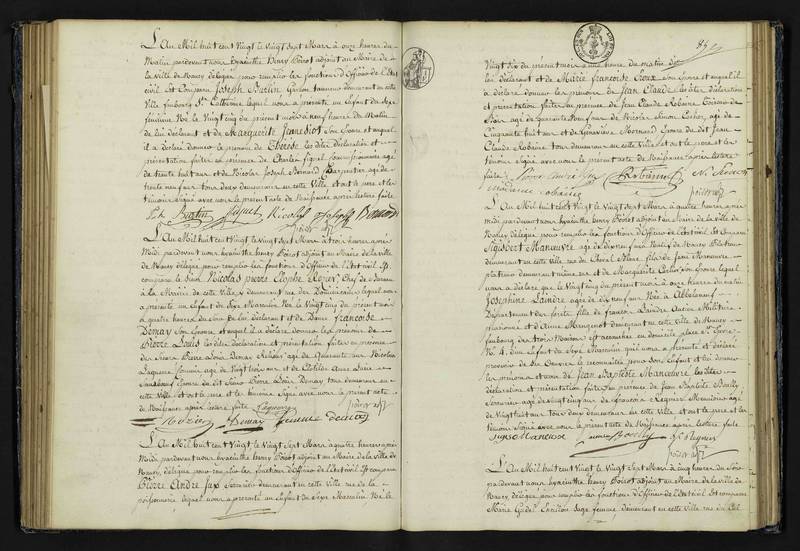 L'An Mil huit cent Vingt le Vingt Sept Mars à onze heures du
Matin pardevant nous hyacinthe henry Poirot adjoint au Maire de
la Ville de Nancy délégué pour remplir les fonctions d'Officier de l'état
civil Est Comparu Joseph Burtin Garçon tanneur demeurant en cette
Ville faubourg Ste Catherine lequel nous a présenté un Enfant du Sexe
féminin Né le Vingt cinq du présent mois à neuf heures du Matin
de lui déclarant et de Marguerite Jeandidot Son Epouse et auquel
il a déclaré donner le prénom de Thérèse les dites déclaration et
présentation faites en présence de Charles Piquet Commissionnaire agé
de trente huit ans et Nicolas Joseph Bernard Charpentier agé de
trente neuf ans tous deux demeurant en cette Ville et ont le père et les
témoins Signé avec nous le présent acte de Naissance après lecture faite
Burtin Piquet Nicolas Joseph Bernard
Poirot adjt
L'An Mil huit cent Vingt le Vingt Sept Mars à trois heures après
Midi pardevant nous hyacinthe henry Poirot adjoint au Maire de la ville
de Nancy délégué pour remplir les fonctions d'Officier de l'état civil Est
comparu le Sieur Nicolas pierre Rozier Chef de Bureau
à la Mairie de cette Ville y demeurant rue des Dominicains lequel nous
a présenté un Enfant du Sexe Masculin Né le Vingt cinq du présent mois
à quatre heures du Soir de lui déclarant et de Dame françoise
Demay Son Epouse et auquel il a déclaré donner les prénoms de
Pierre Louis les dites déclaration et présentation faites en présence
des Sieurs Pierre Louis Demay agé de Quarante ans Nicolas
agé de Vingt trois ans et de Clotilde
Epouse du dit Sieur Pierre Louis Demay tous demeurant en
cette Ville et ont le père et les témoins Signé avec nous le présent acte
de Naissance après lecture faite
Poirot adjt
Rozier Demay femme demay
L'An Mil huit cent Vingt le Vingt Sept Mars à quatre heures après
Midi pardevant nous hyacinthe henry Poirot adjoint au Maire de la Ville de
Nancy, délégué pour remplir les fonctions d'Officier de l'état civil Est comparu
Pierre André demeurant en cette Ville rue de la
poissonnerie lequel nous a présenté un Enfant du Sexe Masculin Né le
85
Vingt Six du présent mois à une heure du matin de
lui déclarant et de Marie françoise Son Epouse et auquel il
a déclaré donner les prénoms de Jean Claude les dites déclaration
et présentation faites en présence de Jean Claude Robaine
agé de quarante Neuf ans de Nicolas Simon agé de
Cinquante huit ans et de Geneviève Normand Epouse du dit Jean
Claude Robaine tous demeurant en cette Ville et ont le père et les
témoins Signé avec nous le présent acte de Naissance après lecture
faite
Pierre andré Robaine N. Simon
madame robaine
Poirot adjt
L'An Mil huit cent Vingt le Vingt Sept Mars à quatre heures après
midi pardevant nous hyacinthe henry Poirot adjoint au Maire de la Ville de
Nancy délégué pour remplir les fonctions d'Officier de l'état civil Est comparu
Sigisbert Manoeuvre agé de dix neuf ans Natif de Nancy
demeurant en cette Ville rue du Cheval blanc fils de feu Manoeuvre
demeurant même rue et de Marguerite Son Epouse lequel
nous a déclaré que le Vingt cinq du présent mois à onze heures du matin
Josephine Laindre agée de dix neuf ans Née à
Département des forêts fille de françois Laindre Ancien Militaire
pensionné et d'Anne demeurant en cette Ville de Nancy
faubourg des trois Maisons est accouchée en son domicile place St George
No 4 d'un Enfant du Sexe Masculin qu'il nous a présenté et déclaré
provenir de Ses Oeuvres le reconnaître pour Son Enfant et lui donner
les prénoms de Jean Baptiste Manoeuvre les dites
déclaration et présentation faites en présence de Jean Baptiste Bouilly
Serrurier agé de vingt cinq ans et de françois Regnier Menuisier agé
de Vingt huit ans tous deux demeurant en cette Ville et ont le père et les
témoins Signé avec nous le présent acte de Naissance après lecture faite
Manoeuvre Bouilly fs Regnier
Poirot adjt
L'An Mil huit cent Vingt le Vingt Sept Mars à cinq heures du Soir
pardevant nous hyacinthe henry Poirot adjoint au Maire de la Ville de
Nancy, délégué pour remplir les fonctions d'Officier de l'état civil est comparue
Marie Sage femme, demeurant en cette Ville rue du